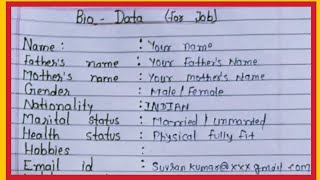 Bio - Data (for Job)
Name : : Your name
Father's name : Your Father's Name
Mother's name : Your mother's Name
Gender : Male / Female
Nationality : INDIAN
Marital status : Married / unmarried
Health status : Physical fully fit
Hobbies :
Email id : @xxx gmail.com